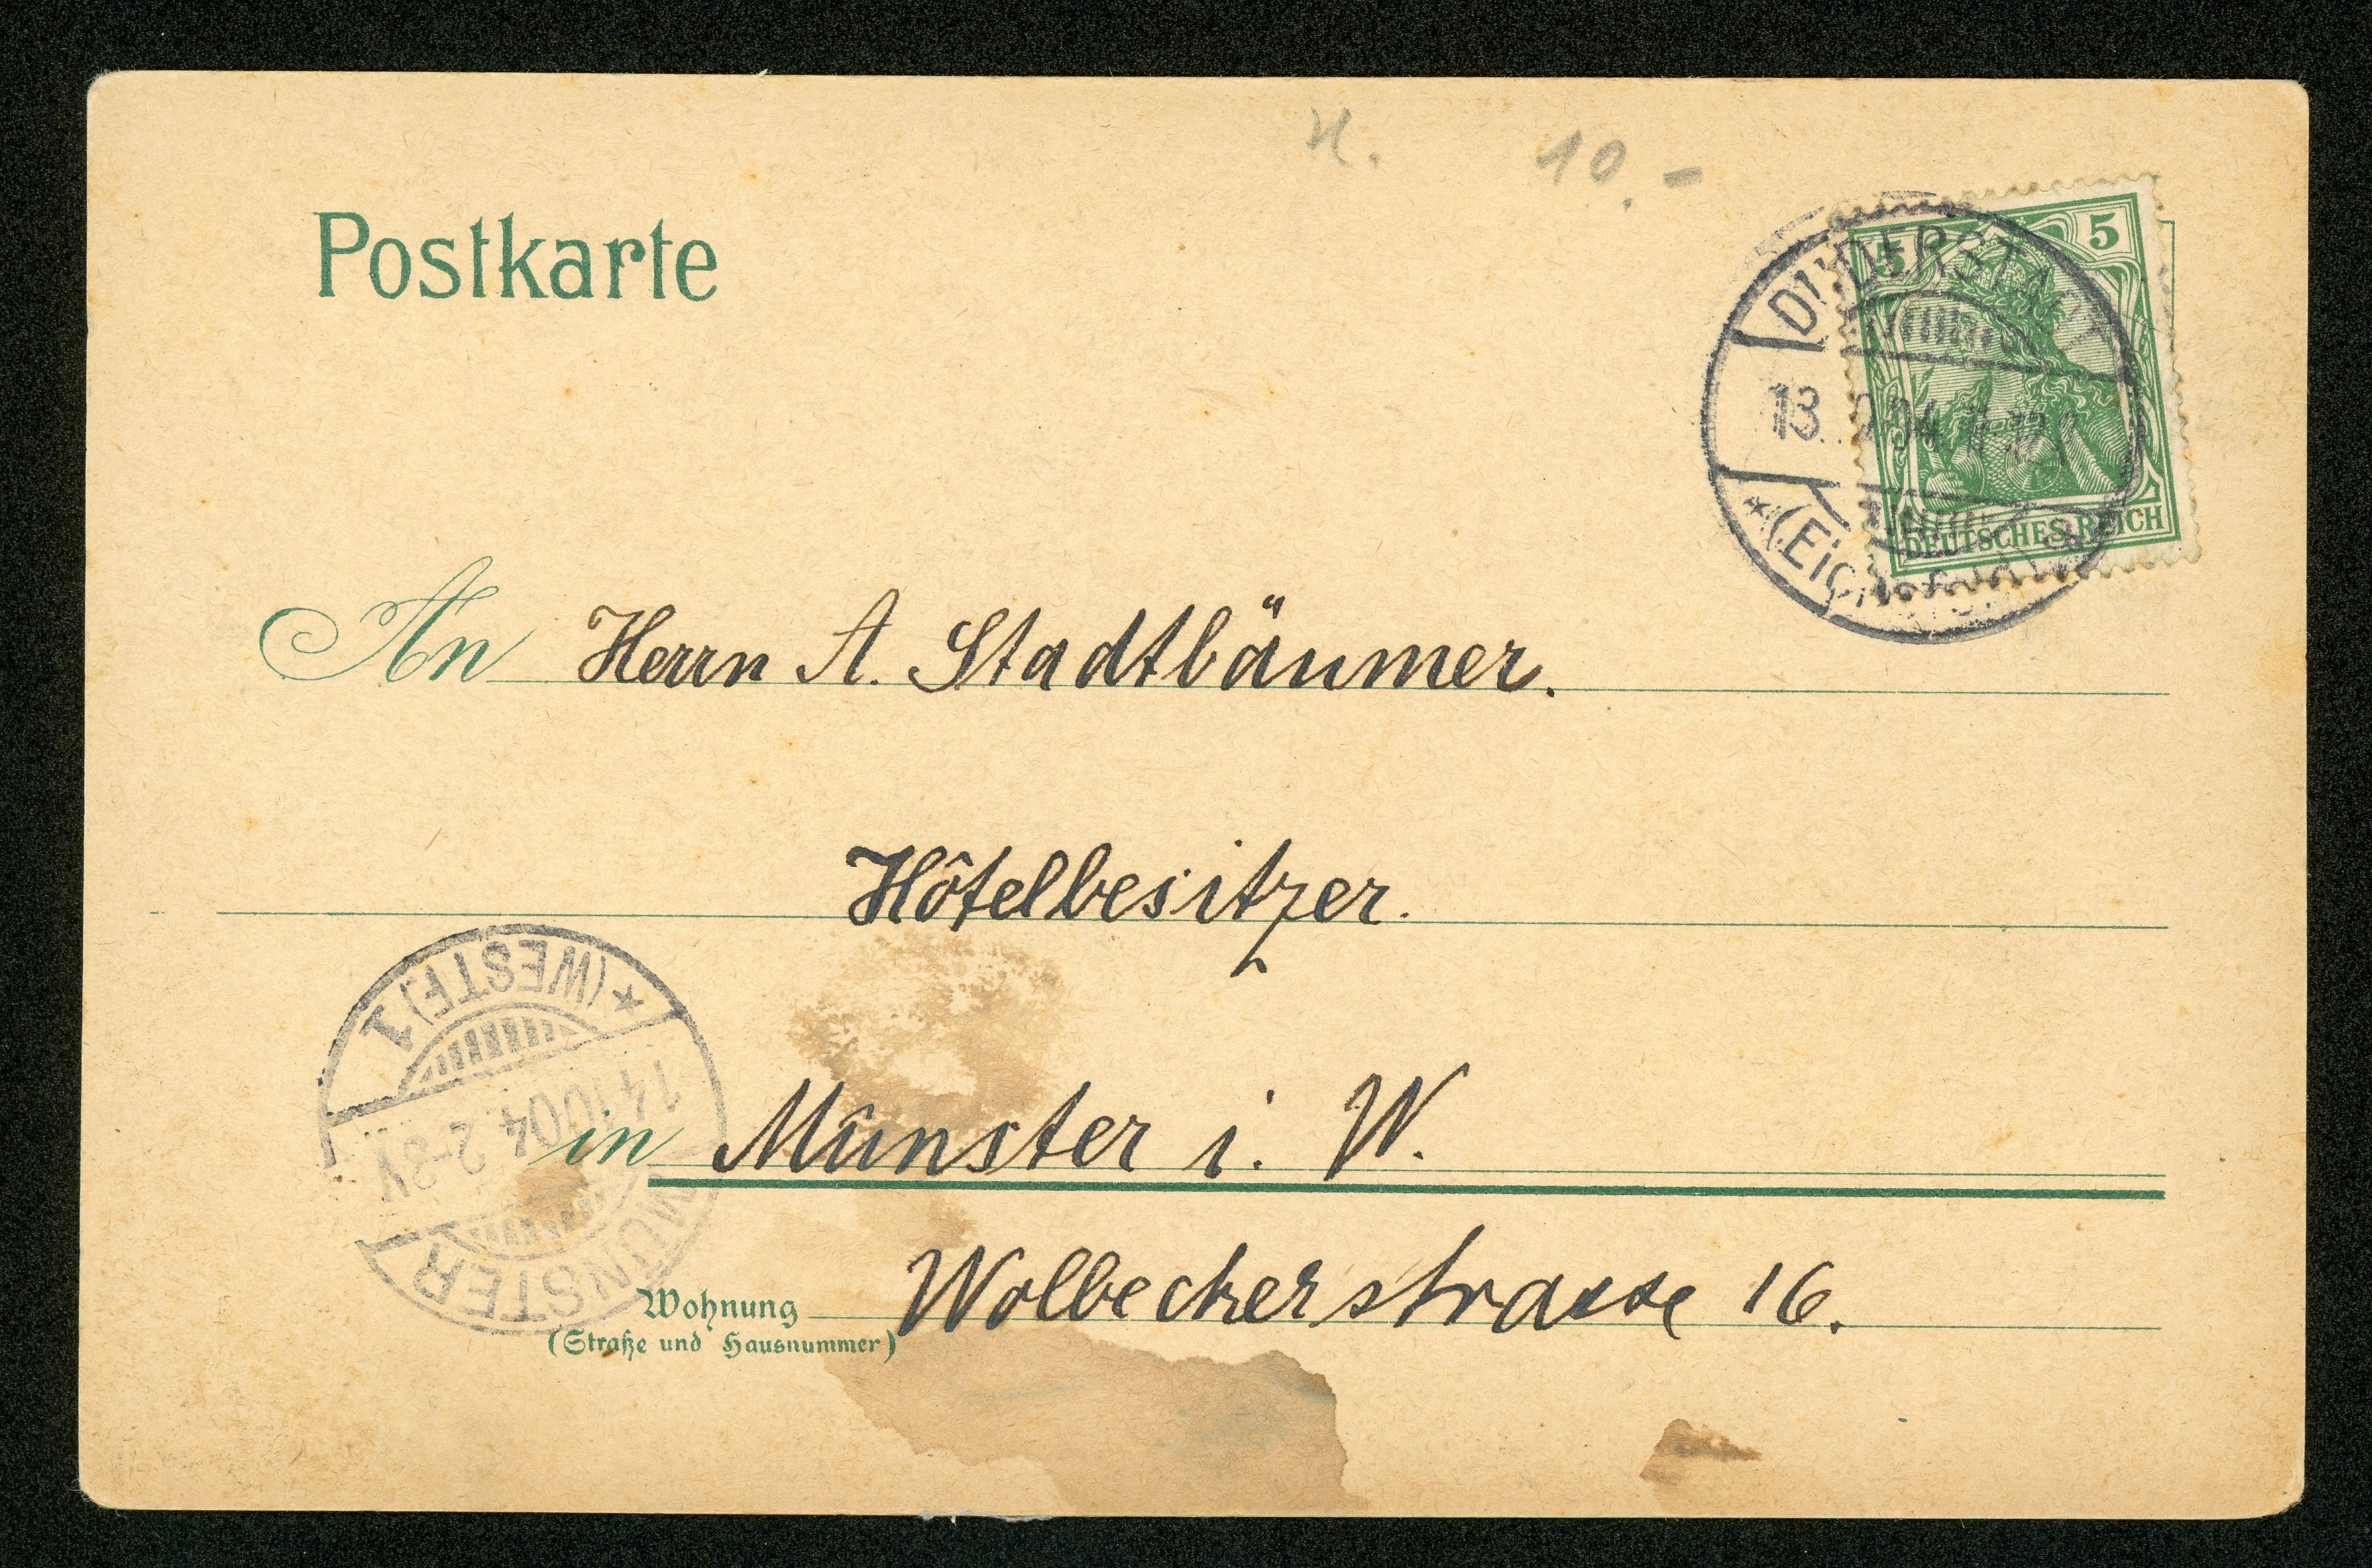 H. 10.-
Postkarte
5 5
DEUTSCHES REICH
DUDERSTADT
13. 04 11-12
*(Eichsfeld)
An Herrn A. Stadtbäumer.
Hôtelbesitzer.
in Münster i. W.
Wolbeckerstrasse 16.
Wohnung
(Straße und Hausnummer)
MÜNSTER
14.10.04. 2-3V.
*(WESTF.)1